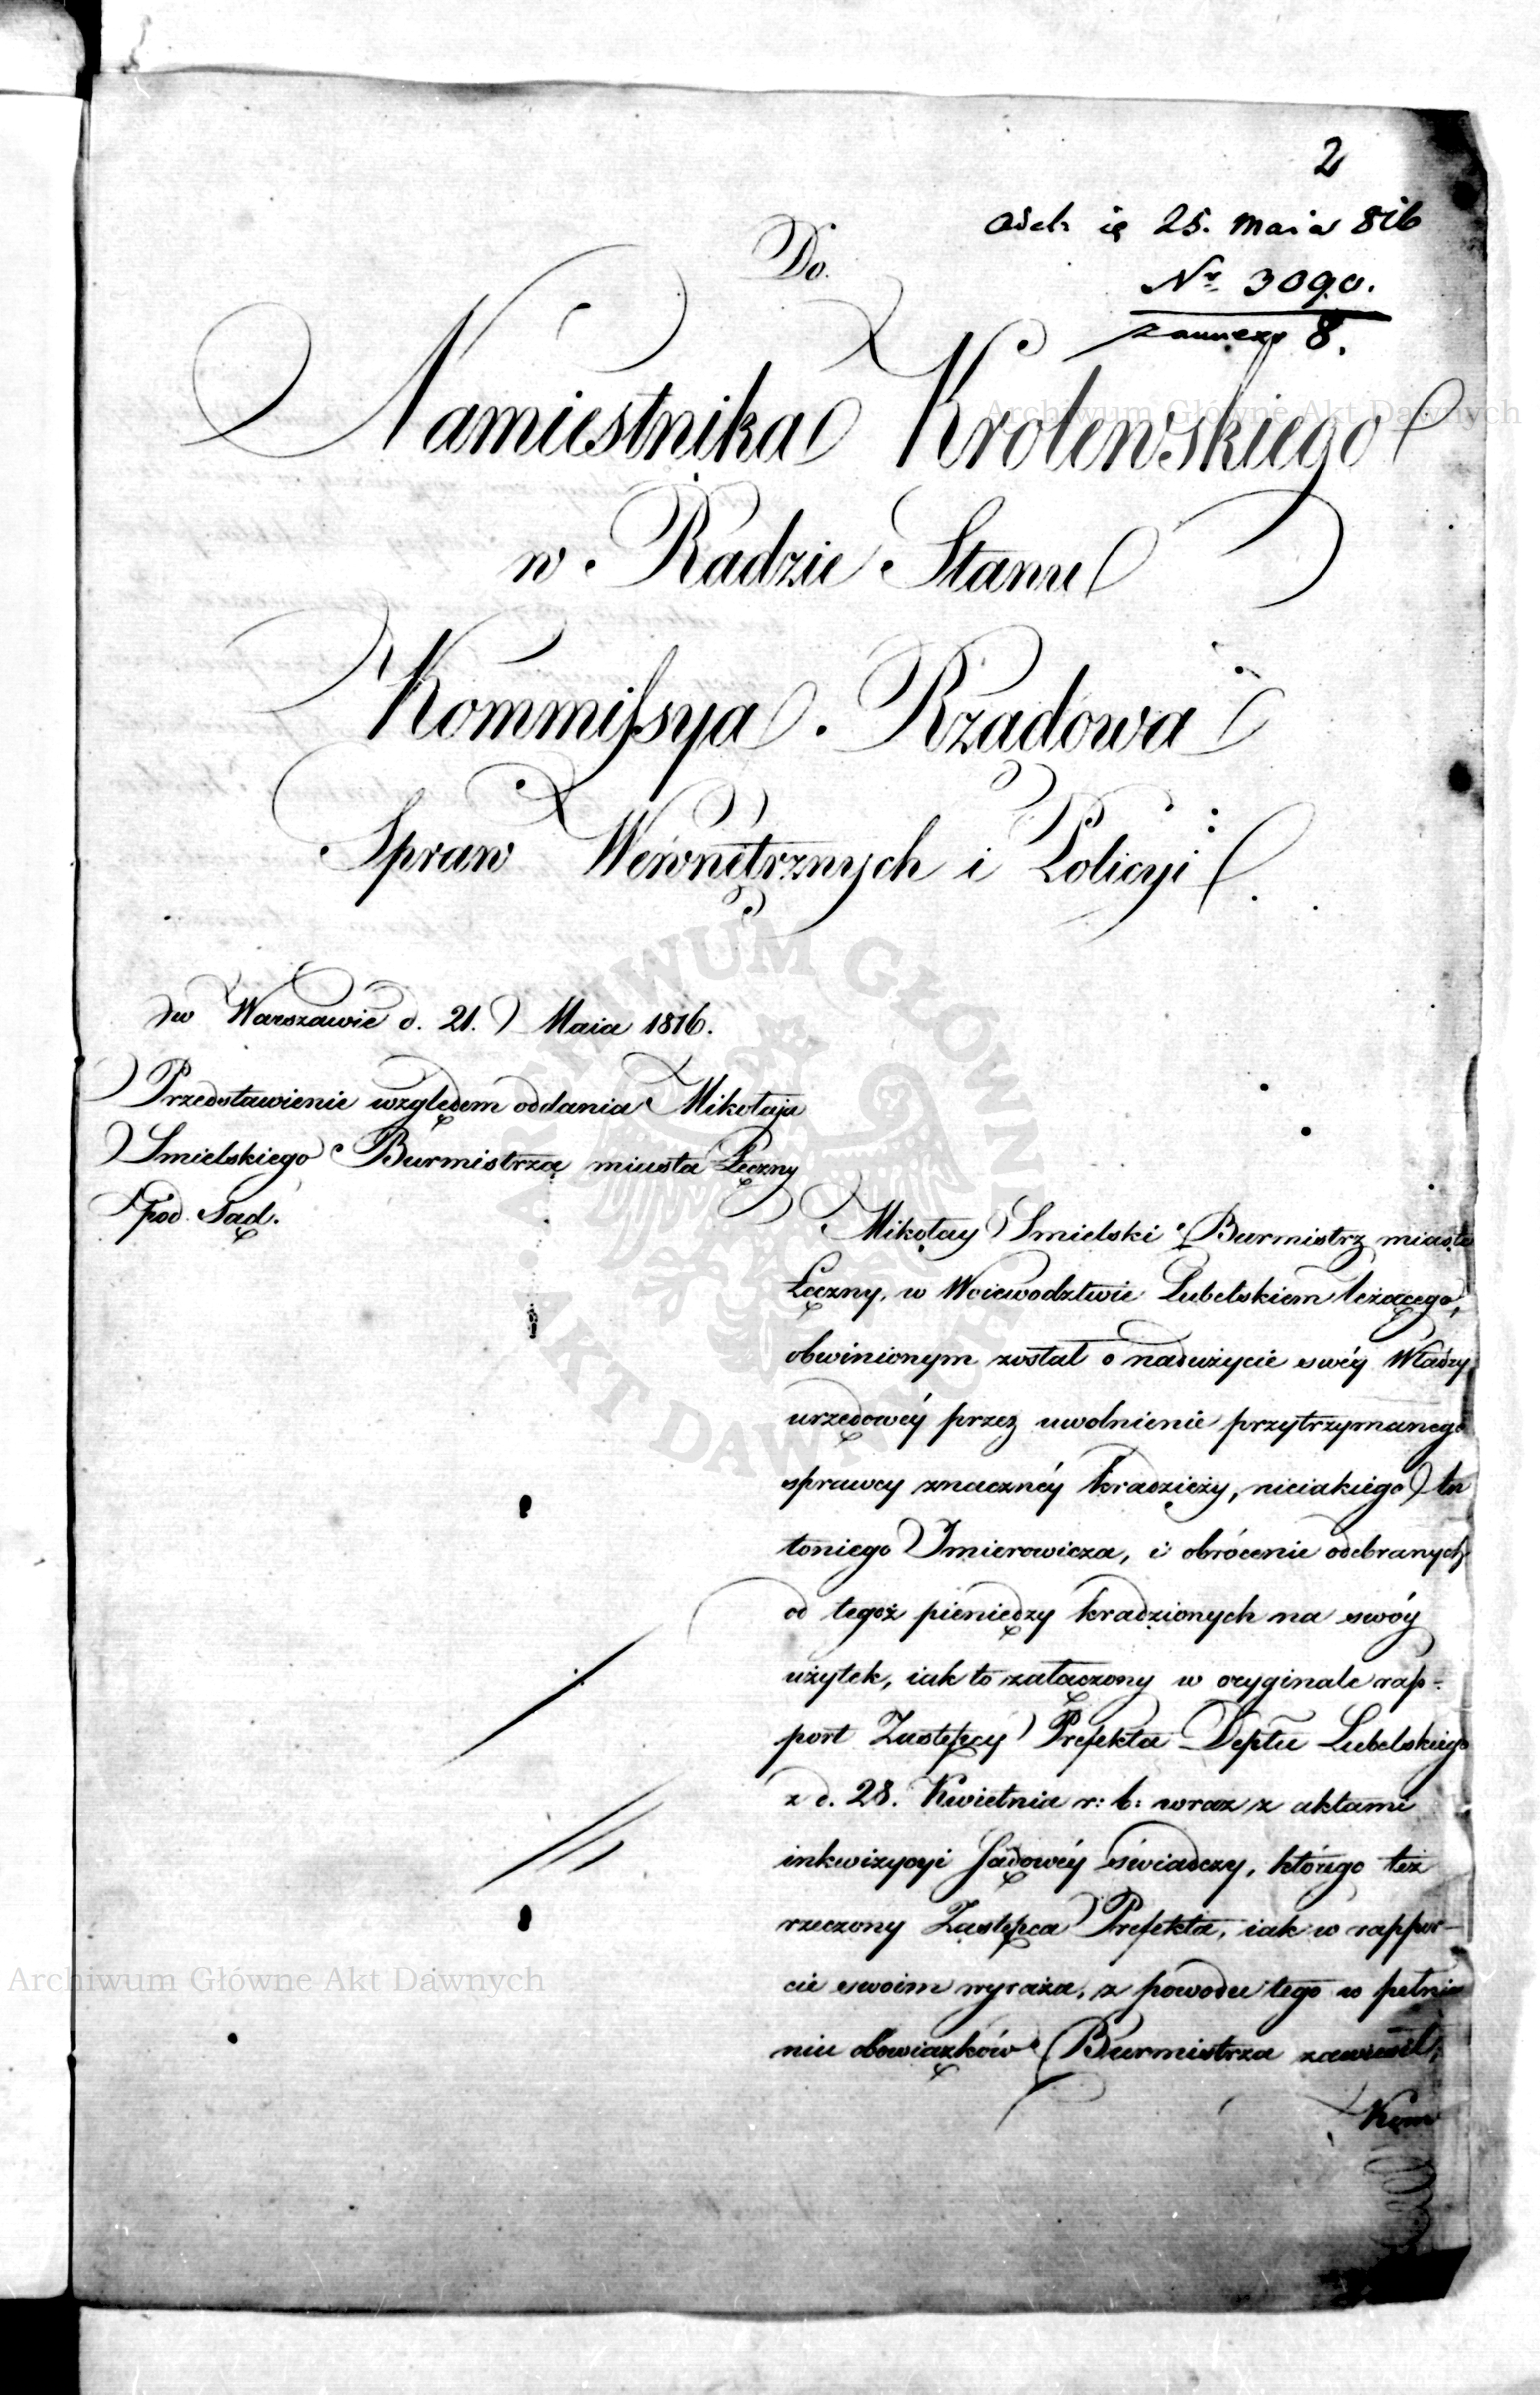 2
Odeb. ię 25. Maia 816
Nr. 3090.
z annexo 8.
Do
Namiestnika Krolewskiego
w Radzie Stanu
Kommissya Rządowa
Spraw Wewnętrznych i Policyi
w Warszawie d. 21. Maia 1816.
Przedstawienie względem oddania Mikołaja
Smielskiego Burmistrza miasta Łęczny
pod Sąd.
Mikołay Smielski Burmistrz miasta
Łęczny, w Woiewodztwie Lubelskiem leżącego,
obwinionym został o nadużycie swéy Władzy
urzędowéy przez uwolnienie przytrzymanego
sprawcy znacznéy kradzieży, nieiakiego An
toniego Smierowicza, i obrócenie odebranych
od tegoż pieniędzy kradzionych na swóy
użytek, iak to załączony w oryginale rap-
port Zastępcy Prefekta Deptu Lubelskiego
z d. 28. Kwietnia r: b: wraz z aktami
inkwizycyi Sądowéy świadczy, którego też
rzeczony Zastępca Prefekta, iak w rappor-
cie swoim wyraża, z powodu tego w pełnie
niu obowiązków Burmistrza zawiesił,
Kom
Archiwum Główne Akt Dawnych
Archiwum Główne Akt Dawnych
ARCHIWUM GŁÓWNE AKT DAWNYCH